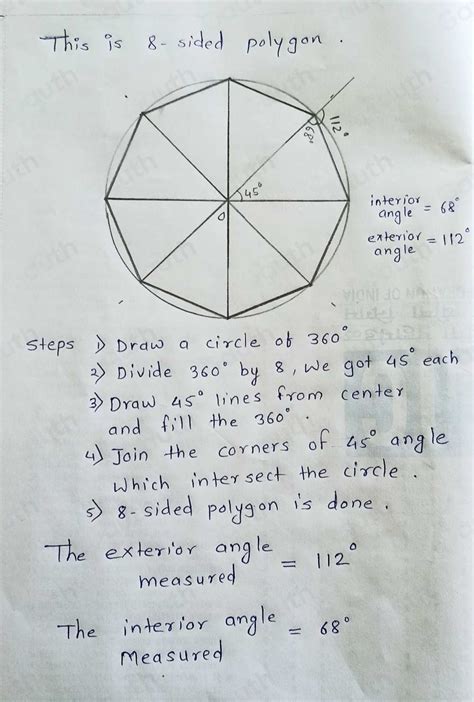 This is 8-sided polygon.
112°
68°
45°
O
interior angle = 68°
exterior angle = 112°
Steps 1) Draw a circle of 360°
2) Divide 360° by 8, we got 45° each
3) Draw 45° lines from center
and fill the 360°.
4) Join the corners of 45° angle
which intersect the circle.
5) 8-sided polygon is done.
The exterior angle measured = 112°
The interior angle Measured = 68°